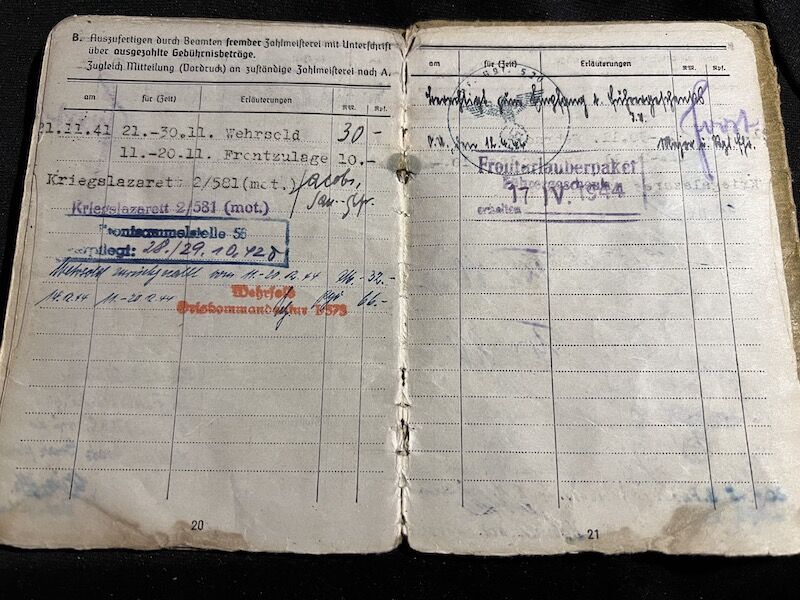 B. Auszufertigen durch Beamten fremder Zahlmeisterei mit Unterschrift
über ausgezahlte Gebührnisbeträge.
Zugleich Mitteilung (Vordruck) an zuständige Zahlmeisterei nach A.
am für (Zeit) Erläuterungen RM. Rpf.
21.11.41 21.-30.11. Wehrsold 30 -
11.-20.11. Frontzulage 10.-
Kriegslazarett 2/581(mot.) Jacobs,
Kriegslazarett 2/581 (mot.)
Frontsammelstelle 56
verpflegt: 28./29.10.42
Wehrsold vom 11.-20.2.44 32.-
11.-20.2.44 66.-
Wehrsold
Ortskommandantur I 573
20
am für (Zeit) Erläuterungen RM. Rpf.
berechtigt zum Empfang d. Führergeschenks
Major u.
Fronturlauberpaket
Führergeschenk
17. IV. 1944
erhalten
21